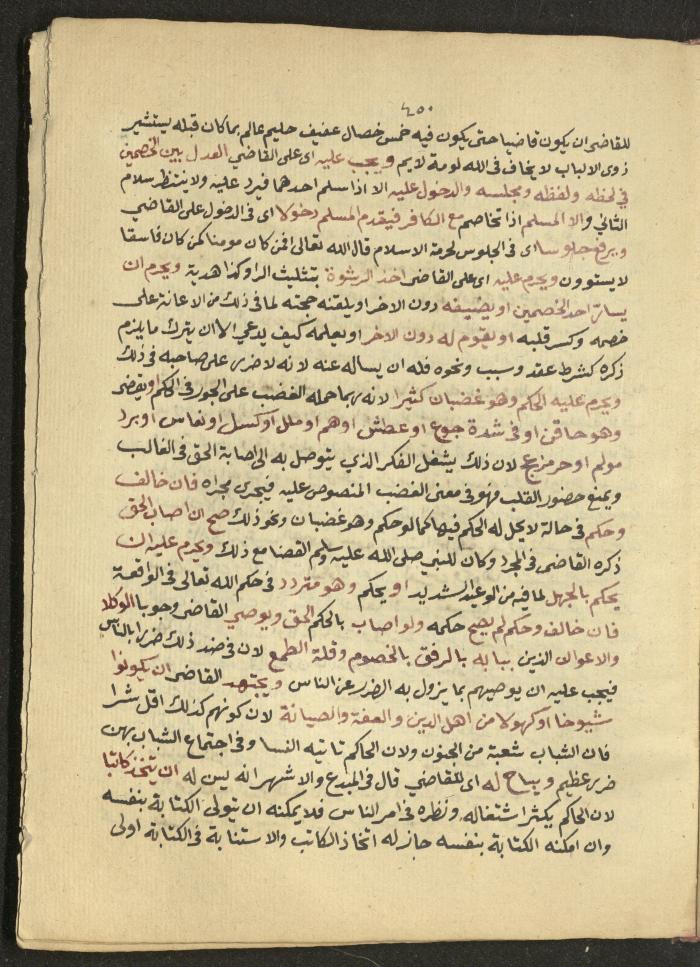 ٤٥٠
للقاضي ان يكون قاضيا حتى يكون فيه خمس خصال عفيف حليم عالم بما كان قبله يستشير
ذوى الالباب لا يخاف في الله لومة لايم ويجب عليه اى على القاضي العدل بين الخصمين
في لحظه ولفظه ومجلسه والدخول عليه الا اذا سلم احدهما فيرد عليه ولا ينتظر سلام
الثاني والا المسلم اذا تخاصم مع الكافر فيقدم المسلم دخولا اى في الدخول على القاضي
ويرفع جلوسا اى في الجلوس لحرمة الاسلام قال الله تعالى افمن كان مومنا كمن كان فاسقا
لا يستوون ويحرم عليه اى على القاضى اخذ الرشوة بتثليث الرا وكذا هدية ويحرم ان
يسارّ احد الخصمين او يضيفه دون الاخر او يلقنه حجته لما في ذلك من الاعانة على
خصمه وكسر قلبه او يقوم له دون الاخر او يعلمه كيف يدعي الا ان يترك ما يلزم
ذكره كشرط عقد وسبب ونحوه فله ان يساله عنه لانه لا ضرر على صاحبه في ذلك
ويحرم عليه الحكم وهو غضبان كثيرا لانه ربما حمله الغضب على الجور في الحكم او يقضى
وهو حاقن او في شدة جوع او عطش او هم او ملل او كسل او نعاس او برد
مولم او حر مزعج لان ذلك يشغل الفكر الذي يتوصل به الى اصابة الحق في الغالب
ويمنع حضور القلب فهو في معنى الغضب المنصوص عليه فيجرى مجراه فان خالف
وحكم في حالة لا يحل له الحكم فيها كما لو حكم وهو غضبان ونحو ذلك صح ان اصاب الحق
ذكره القاضى في المجرد وكان للنبي صلى الله عليه وسلم القضا مع ذلك ويحرم عليه ان
يحكم بالجهل لما فيه من الوعيد الشديد او يحكم وهو متردد في حكم الله تعالى في الواقعة
فان خالف وحكم لم يصح حكمه ولو اصاب بالحكم الحق ويوصي القاضى وجوبا الوكلا
والاعوان الذين ببابه بالرفق بالخصوم وقلة الطمع لان في ضد ذلك ضررا بالناس
فيجب عليه ان يوصيهم بما يزول به الضرر عن الناس ويجتهد القاضى ان يكونوا
شيوخا او كهولا من اهل الدين والعفة والصيانة لان كونهم كذلك اقل شرا
فان الشباب شعبة من الجنون ولان الحاكم تاتيه النسا وفي اجتماع الشباب بهن
ضرر عظيم ويباح له اى للقاضي قال في المبدع والاشهر انه يسن له ان يتخذ كاتبا
لان الحاكم يكثر اشتغاله ونظره في امر الناس فلا يمكنه ان يتولى الكتابة بنفسه
وان امكنه الكتابة بنفسه جاز له اتخاذ الكاتب والاستنابة في الكتابة اولى